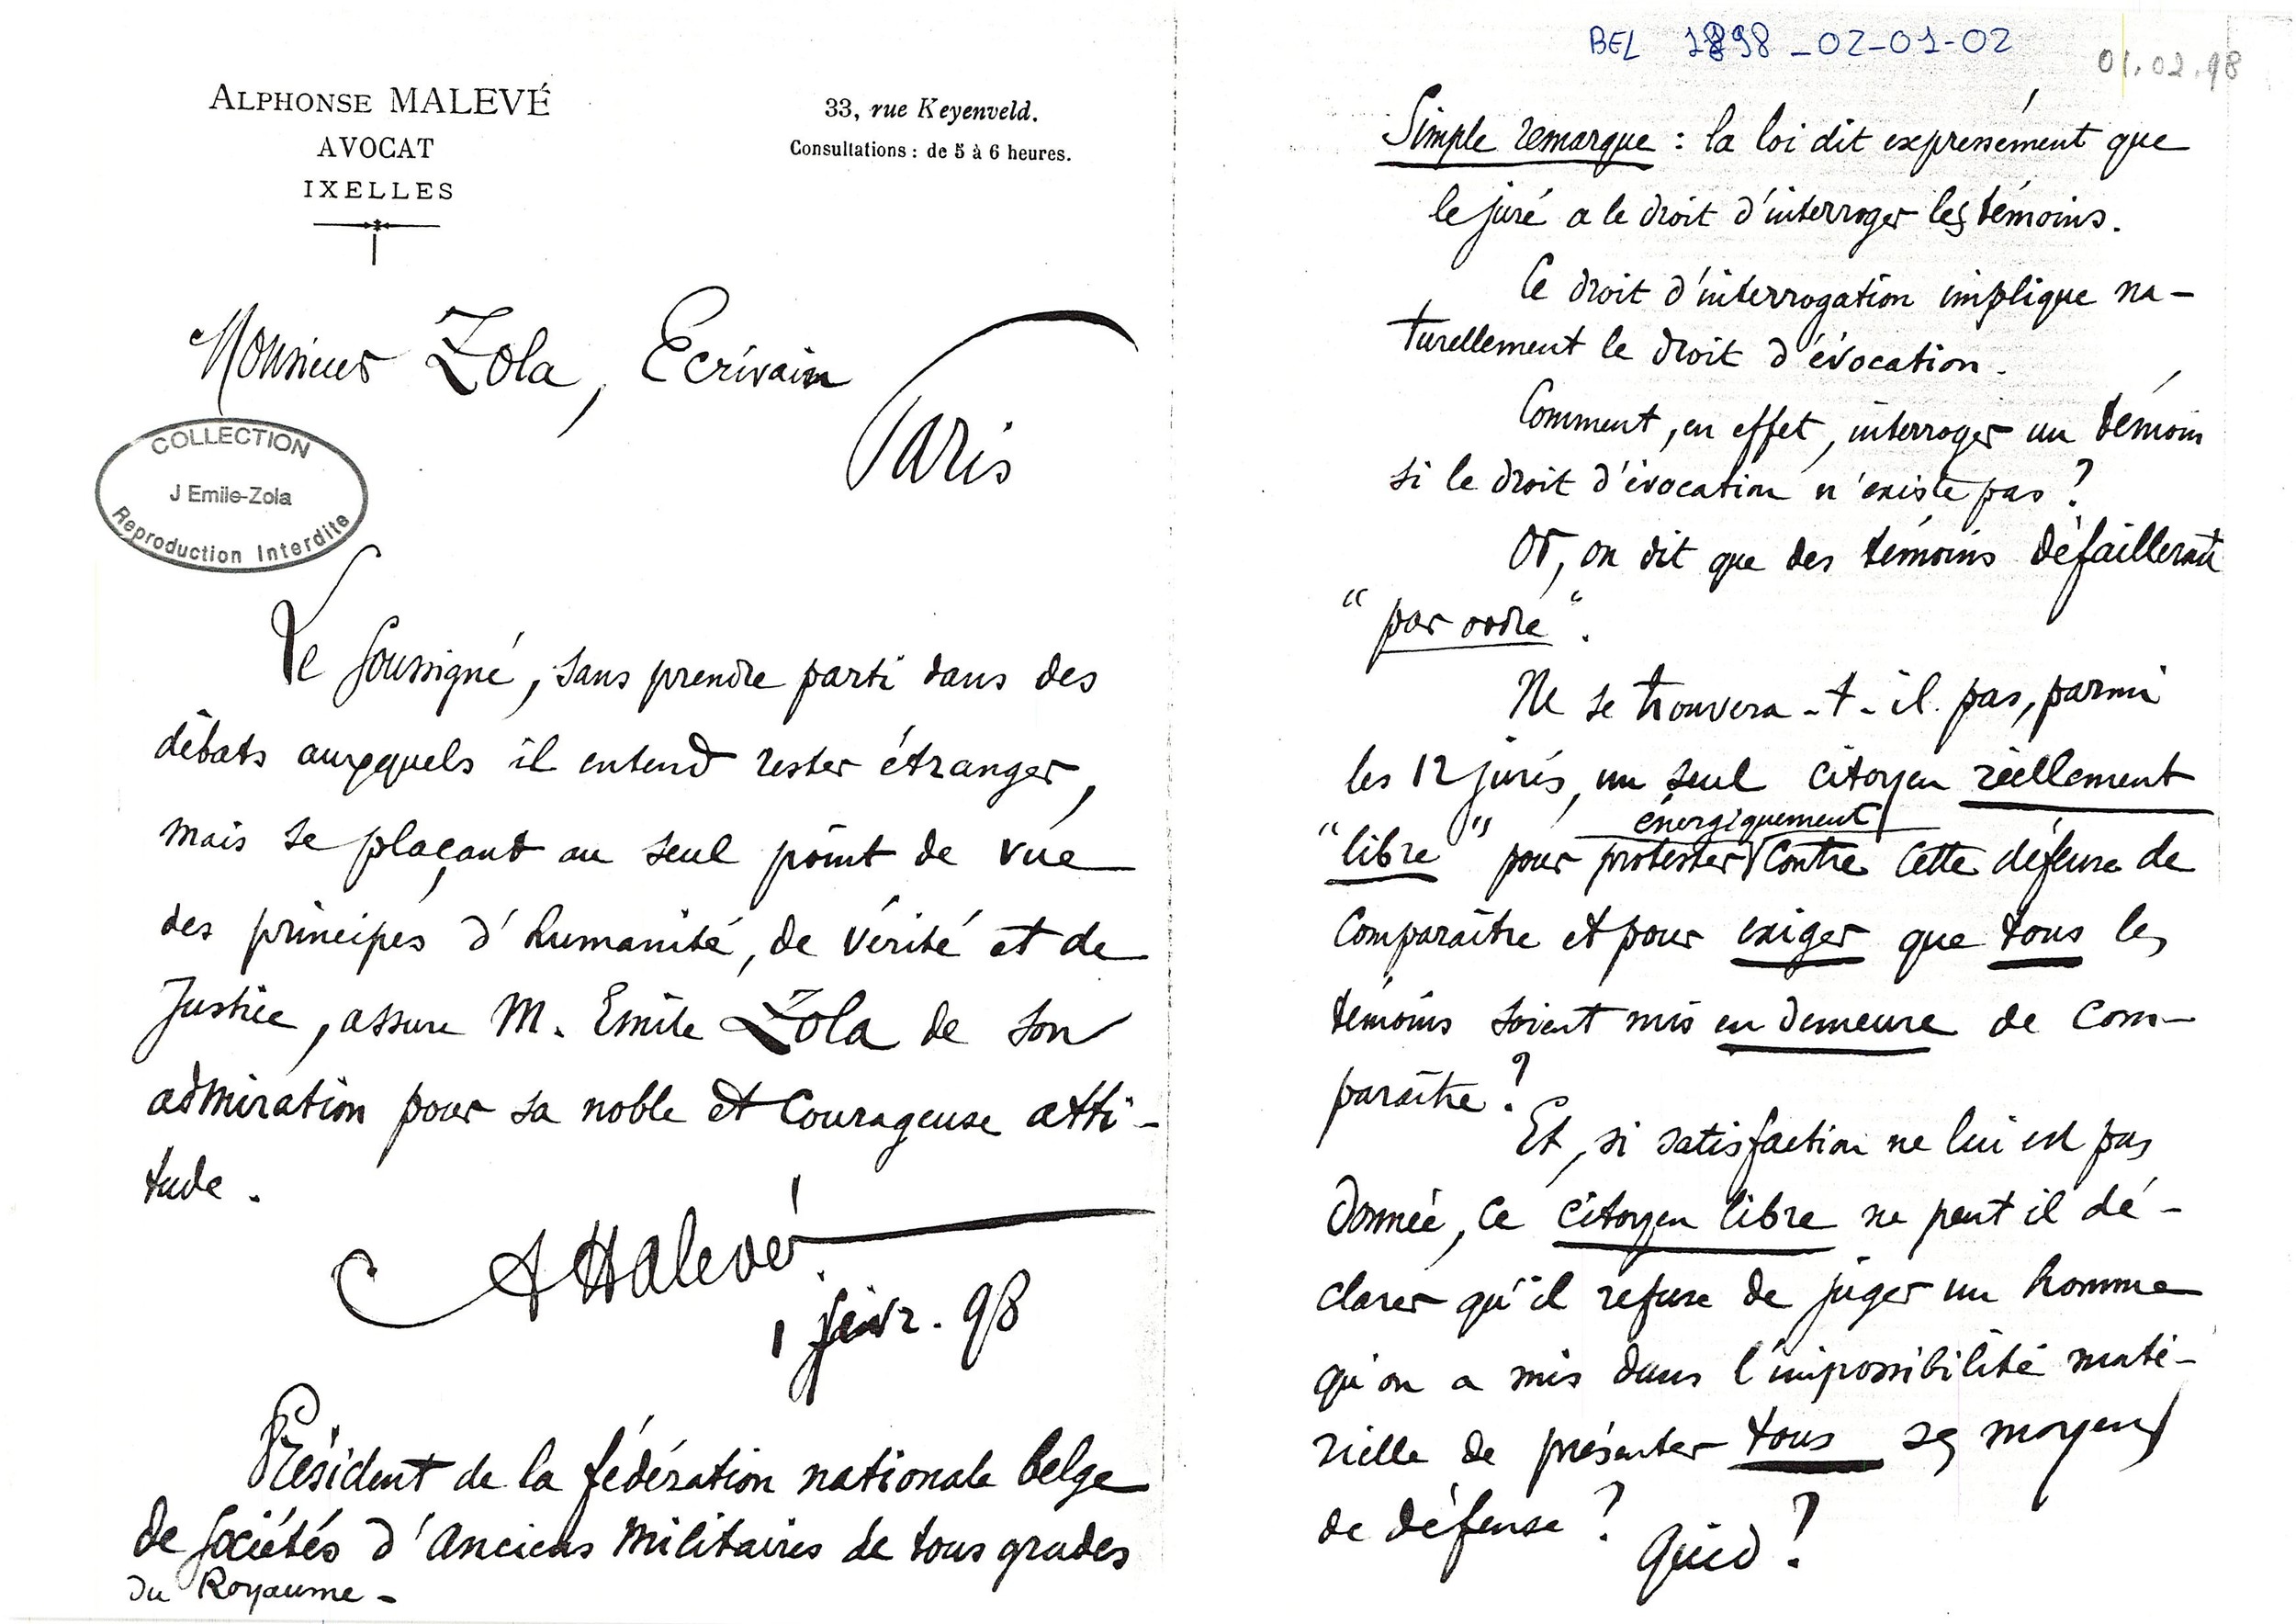 ALPHONSE MALEVÉ
AVOCAT
IXELLES
33, rue Keyenveld.
Consultations : de 5 à 6 heures.
Monsieur Zola, Ecrivain
Paris
COLLECTION
J Emile-Zola
Reproduction Interdite
Le soussigné, sans prendre parti dans des
débats auxquels il entend rester étranger,
mais se plaçant au seul point de vue
des principes d'humanité, de vérité et de
Justice, assure M. Emile Zola de son
admiration pour sa noble et courageuse atti-
tude.
A Malevé
1 févr. 98
Président de la fédération nationale belge
de sociétés d'anciens militaires de tous grades
du Royaume -
BEL 1898_02-01-02
01.02.98
Simple remarque : la loi dit expressément que
le juré a le droit d'interroger les témoins.
Ce droit d'interrogation implique na-
turellement le droit d'évocation.
Comment, en effet, interroger un témoin
si le droit d'évocation n'existe pas ?
Or, on dit que des témoins défailleront
"par ordre".
Ne se trouvera-t-il pas, parmi
les 12 jurés, un seul citoyen réellement
énergiquement
"libre" pour protester contre cette défense de
comparaître et pour exiger que tous les
témoins soient mis en demeure de com-
paraître ?
Et, si satisfaction ne lui est pas
donnée, ce citoyen libre ne peut il dé-
clarer qu'il refuse de juger un homme
qu'on a mis dans l'impossibilité maté-
rielle de présenter tous ses moyens
de défense ? Quid ?